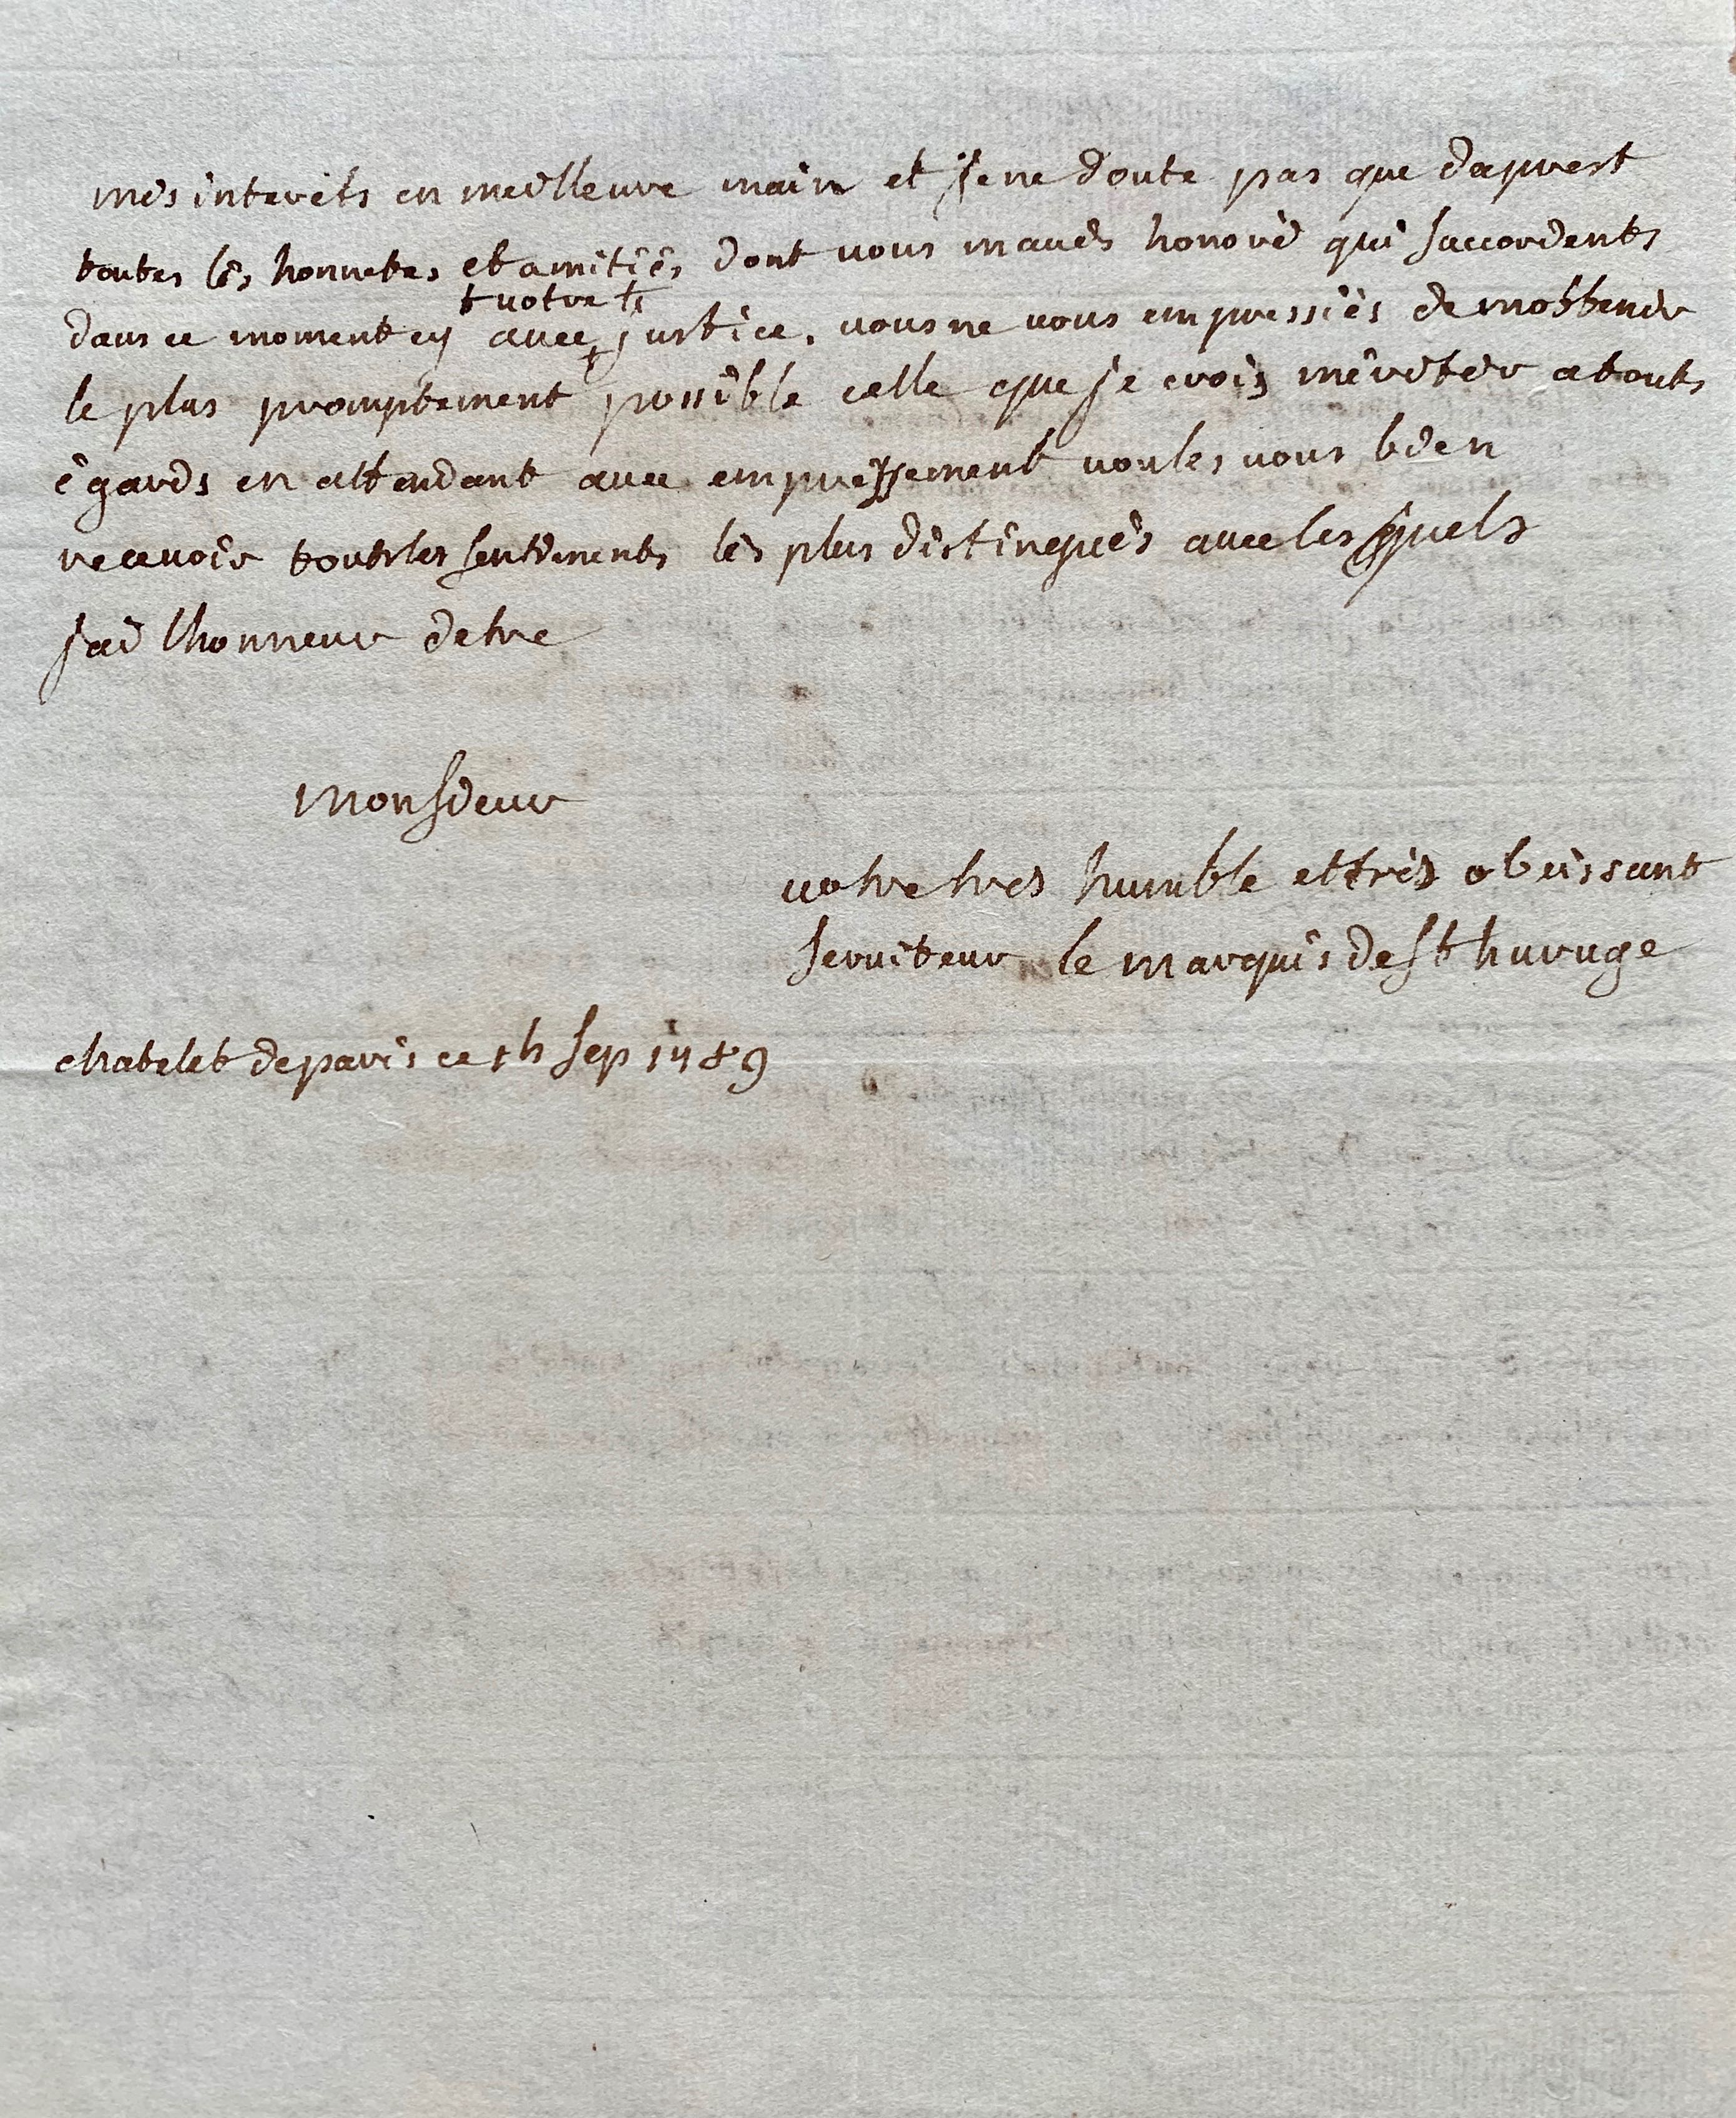 mes interéts en meilleure main et je ne doute pas que daprest
toutes lès honnetes et amitiés dont vous mavés honoré qui saccordents
t votre ts
dans ce moment cy avec + justice. vous ne vous empressiés de mobtenir
le plus promptement possible celle que je crois mériter a touts
égards en attendant avec empressement voules vous bien
recevoir touts les sentiments lès plus distingués avec les quels
jai lhonneur detre
Monsieur
votre tres humble et trés obeissant
serviteur le marquis de st huruge
chatelet de paris ce 15 sep 1789